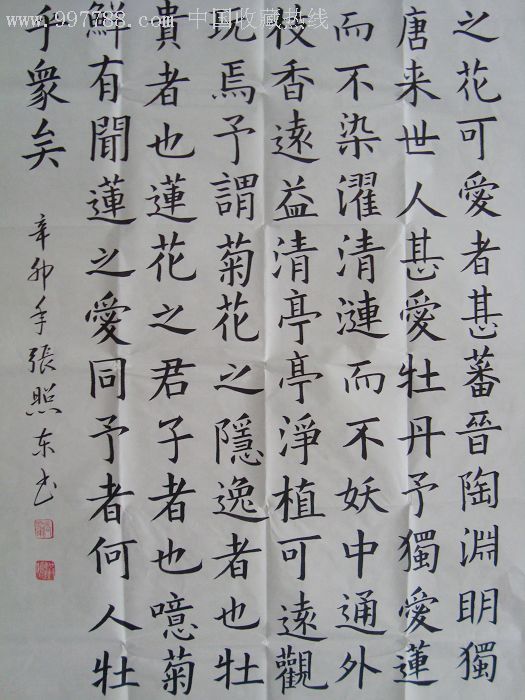 www.997788.com 中国收藏热线
之花可愛者甚蕃晉陶淵明獨
唐来世人甚愛牡丹予獨愛蓮
而不染濯清漣而不妖中通外
枝香遠益清亭亭淨植可遠觀
玩焉予謂菊花之隱逸者也牡
貴者也蓮花之君子者也噫菊
鮮有聞蓮之愛同予者何人牡
乎衆矣
辛卯年張照东书